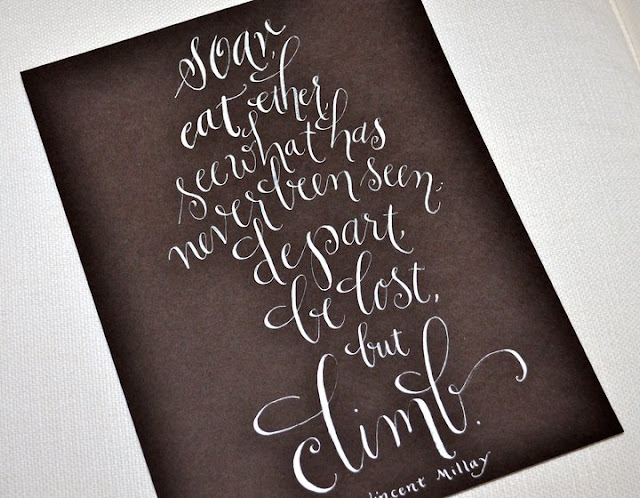 soar,
eat ether,
see what has
never been seen;
depart,
be lost,
but
climb.
Vincent Millay